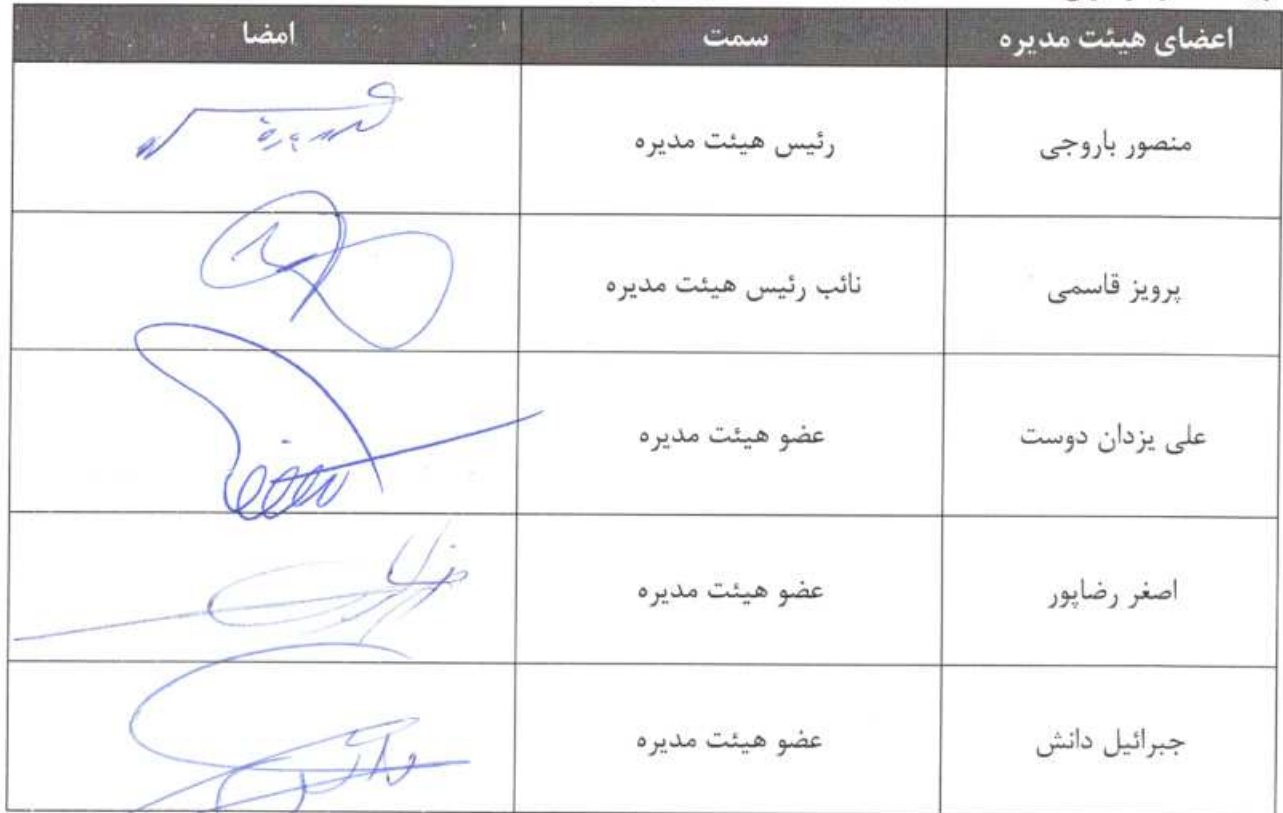 اعضای هیئت مدیره سمت امضا
منصور باروجی رئیس هیئت مدیره
پرویز قاسمی نائب رئیس هیئت مدیره
علی یزدان دوست عضو هیئت مدیره
اصغر رضاپور عضو هیئت مدیره
جبرائیل دانش عضو هیئت مدیره